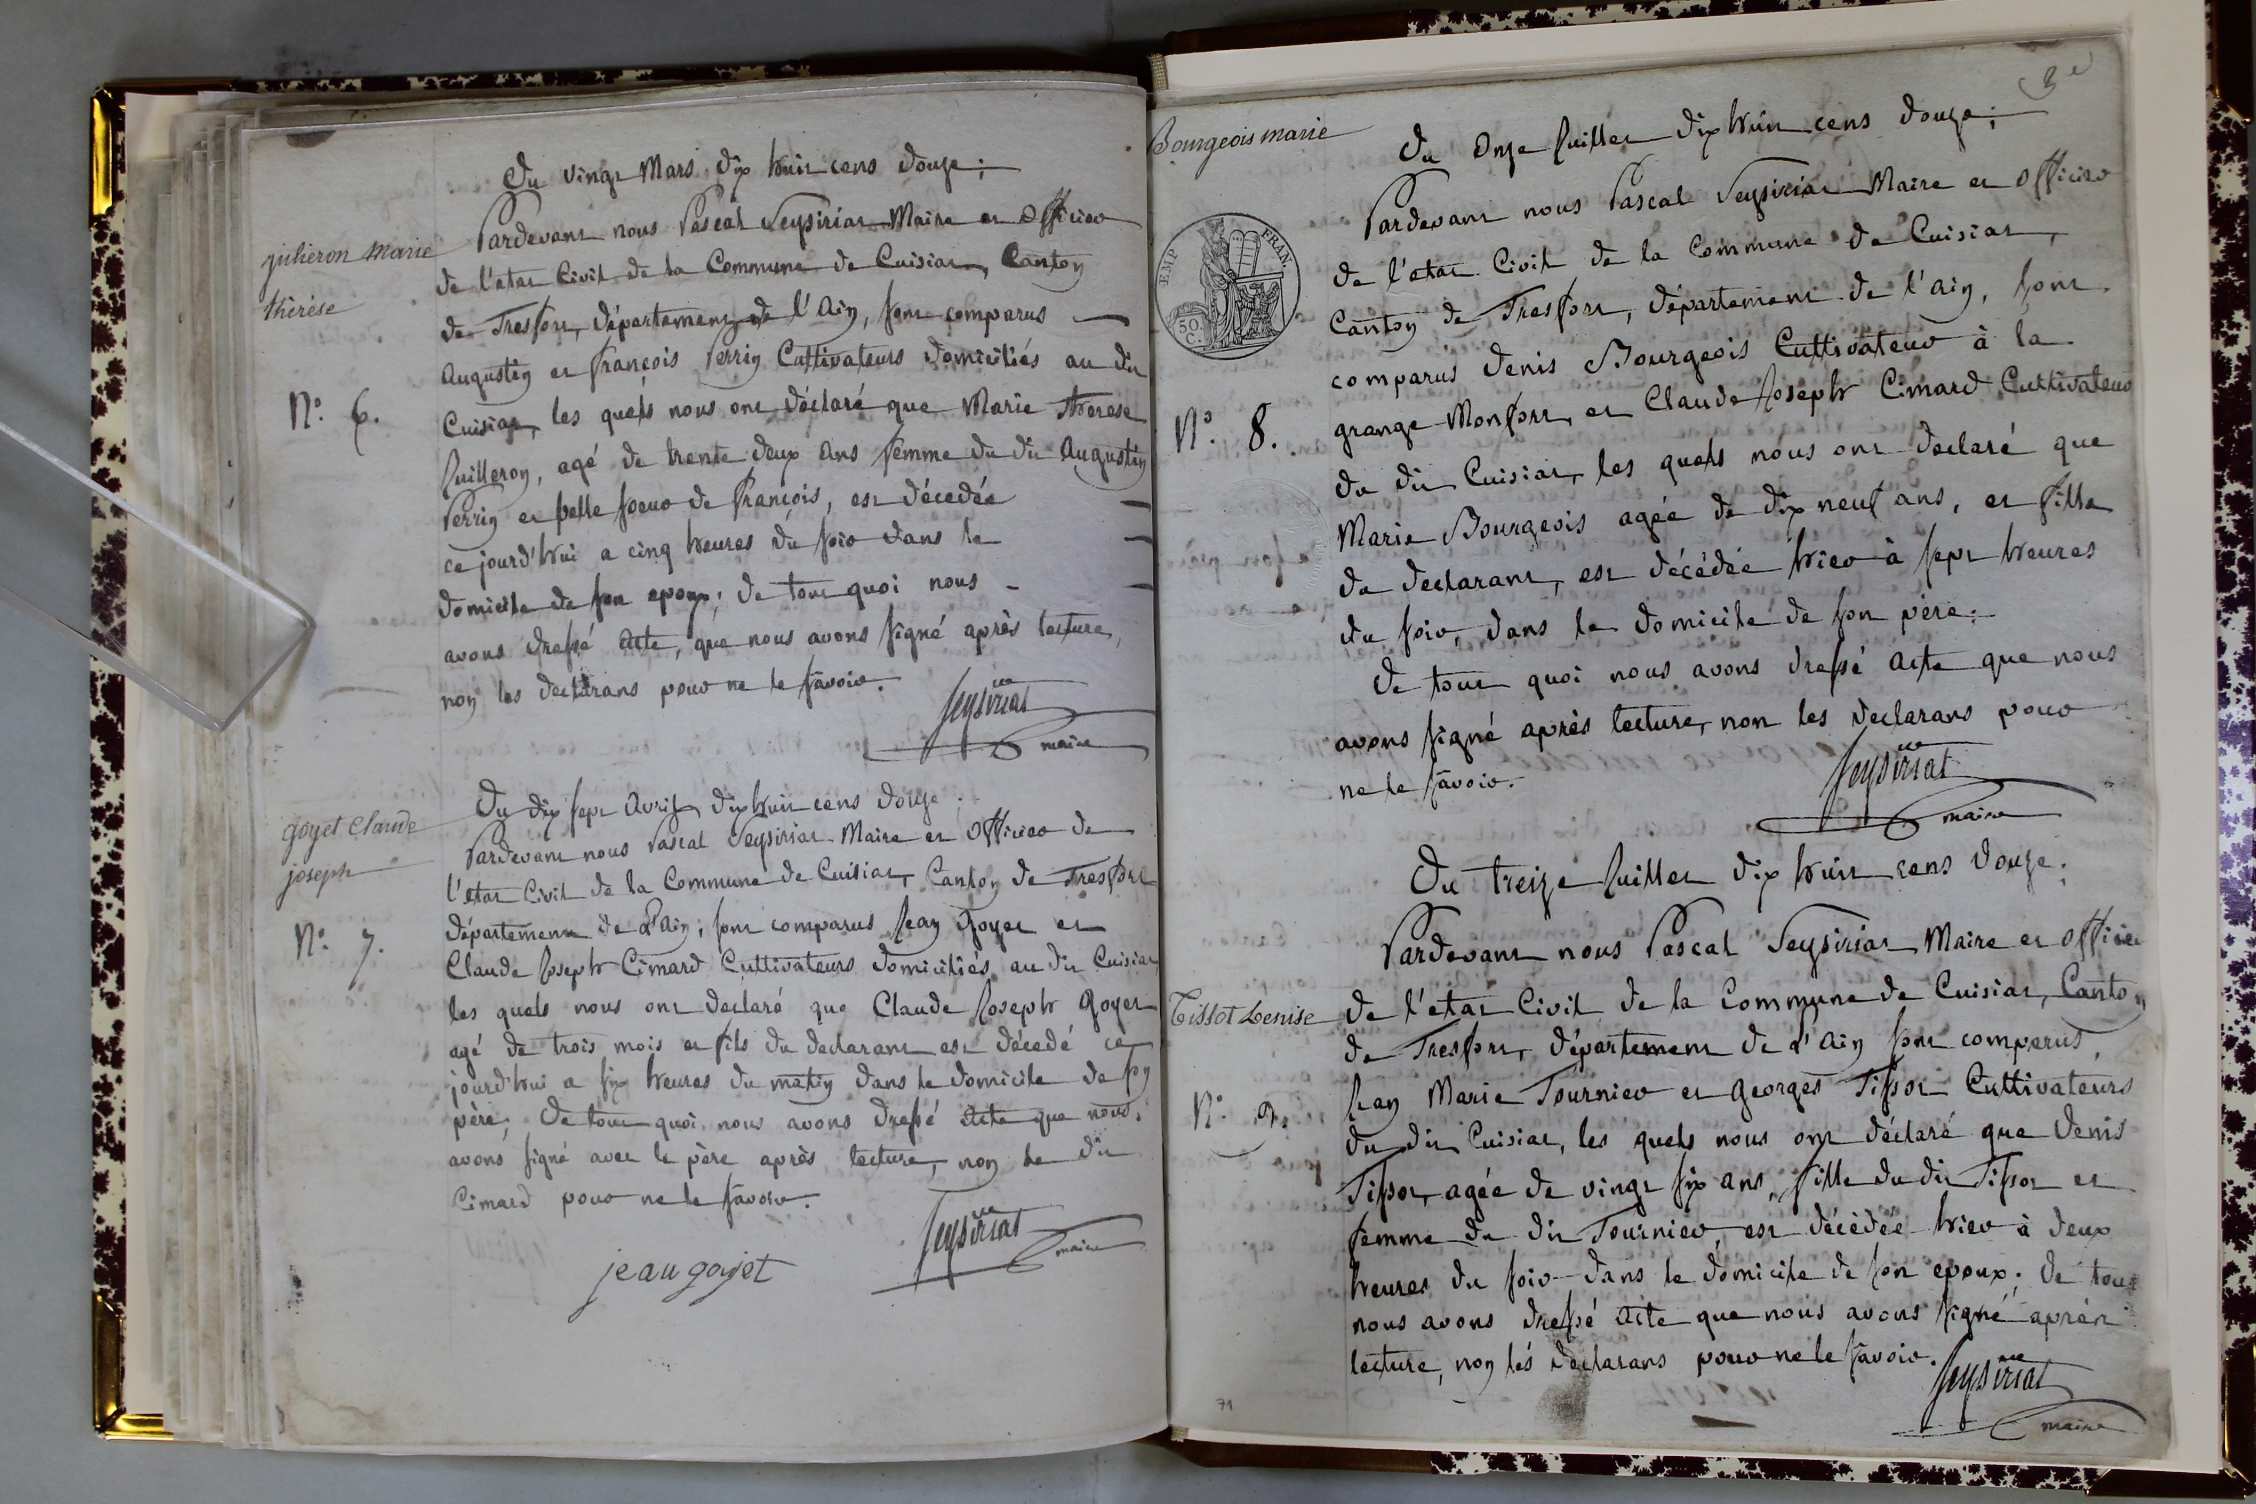 Du vingt Mars dix huit cens douze ;
Pardevant nous Pascal Seysiriat Maire et Officier
julieron marie
thérèse
de l'etat Civil de la Commune de Cuisiat, Canton
de Tresfort, département de l'Ain, sont comparus
Augustin et françois Perrin Cultivateurs domiciliés au dit
N.° 6.
Cuisiat, les quels nous ont déclaré que Marie Therese
Juilleron, agé de trente deux ans femme du dit Augustin
Perrin et belle soeur de François, est décedée
ce jourd'hui a cinq heures du soir dans le
domicile de son epoux ; de tout quoi nous
avons dressé acte, que nous avons signé après lecture,
non les declarans pour ne le savoir.
Seysiriat
maire
Du dix sept Avril dix huit cens douze.
goyet Claude
joseph
Pardevant nous Pascal Seysiriat Maire et Officier de
l'etat Civil de la Commune de Cuisiat, Canton de Tresfort
N.° 7.
département de l'Ain ; sont comparus Jean Goyet et
Claude Joseph Cimard Cultivateurs domiciliés au dit Cuisiat
les quels nous ont declaré que Claude Joseph Goyet
agé de trois mois et fils du declarant est décedé ce
jourd'hui a six heures du matin dans le domicile de son
père, De tout quoi nous avons dressé Acte que nous
avons signé avec le père après lecture, non le dit
Cimard pour ne le savoir.
Seysiriat
maire
jean goyet
Bourgeois marie
Du Onze Juillet dix huit cens douze ;
Pardevant nous Pascal Seysiriat Maire et Officier
de l'etat Civil de la Commune de Cuisiat,
TIMP FRAN.
50.
C.
Canton de Tresfort, département de l'ain, sont
comparus Denis Bourgeois Cultivateur à la
N.° 8.
grange Monfort, et Claude Joseph Cimard Cultivateur
du dit Cuisiat, les quels nous ont declaré que
Marie Bourgeois agée de dix neuf ans, et fille
du declarant, est décédée hier à sept heures
du soir, dans le domicile de son père.
De tout quoi nous avons dressé acte que nous
avons signé après lecture, non les declarans pour
ne le savoir.
Seysiriat
maire
Du treize Juillet dix huit cens douze.
Pardevant nous Pascal Seysiriat Maire et Officier
Tissot Denise
de l'etat Civil de la Commune de Cuisiat, Canton
de Tresfort, département de l'Ain sont comparus
N.° 9.
Jean Marie Tournier et Georges Tissot Cultivateurs
du dit Cuisiat, les quels nous ont déclaré que Denis
Tissot, agée de vingt six ans, fille du dit Tissot et
femme du dit Tournier, est décédée hier à deux
heures du soir dans le domicile de son epoux. De tout
nous avons dressé Acte que nous avons signé après
lecture, non lés declarans pour ne le savoir.
Seysiriat
maire
71